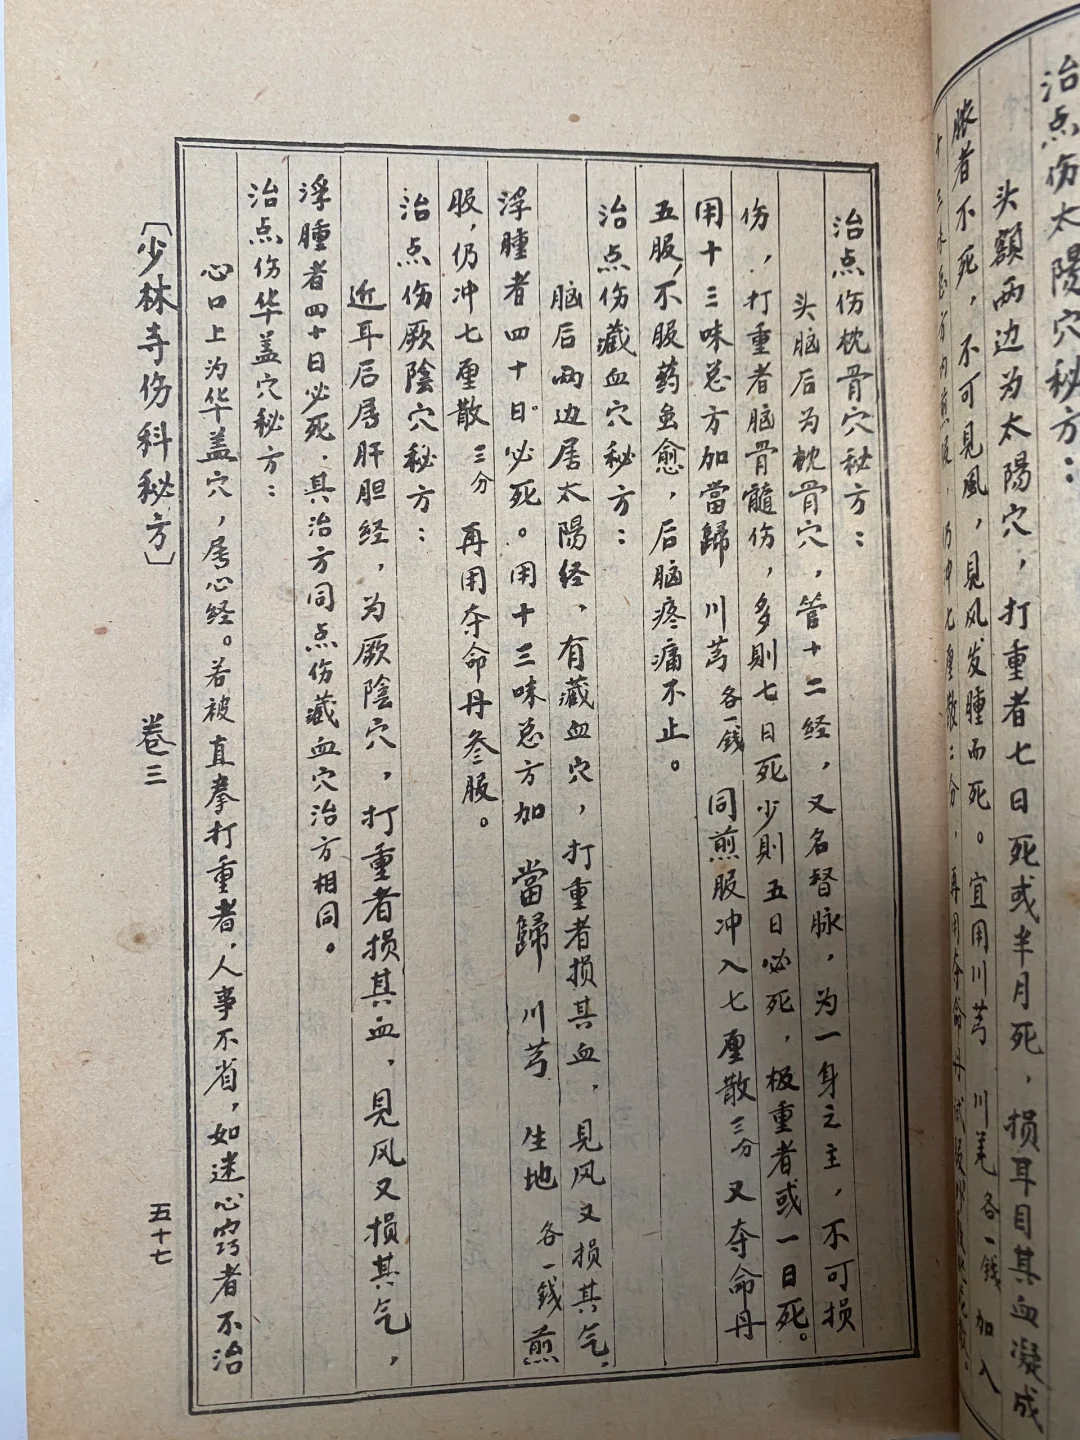 治点伤太陽穴秘方：
头額两边为太陽穴，打重者七日死或半月死，损耳目其血凝成
脓者不死，不可見風，見风发腫而死。宜用川芎 川羌各一錢 加入
治点伤枕骨穴秘方：
头脑后为枕骨穴，管十二经，又名督脉，为一身之主，不可损
伤，打重者脑骨髓伤，多則七日死少則五日必死，极重者或一日死。
用十三味总方加當歸 川芎各一錢 同煎服冲入七厘散三分又夺命丹
五服，不服药虽愈，后脑疼痛不止。
治点伤藏血穴秘方：
脑后两边居太陽经，有藏血穴，打重者损其血，見风又损其气，
浮腫者四十日必死。用十三味总方加 當歸 川芎 生地 各一錢 煎
服，仍冲七厘散三分 再用夺命丹叁服。
治点伤厥陰穴秘方：
近耳后居肝胆经，为厥陰穴，打重者损其血，見风又损其气，
浮腫者四十日必死．其治方同点伤藏血穴治方相同。
治点伤华盖穴秘方：
心口上为华盖穴，居心经。若被直拳打重者，人事不省，如迷心窍者不治
〔少林寺伤科秘方〕 卷三 五十七